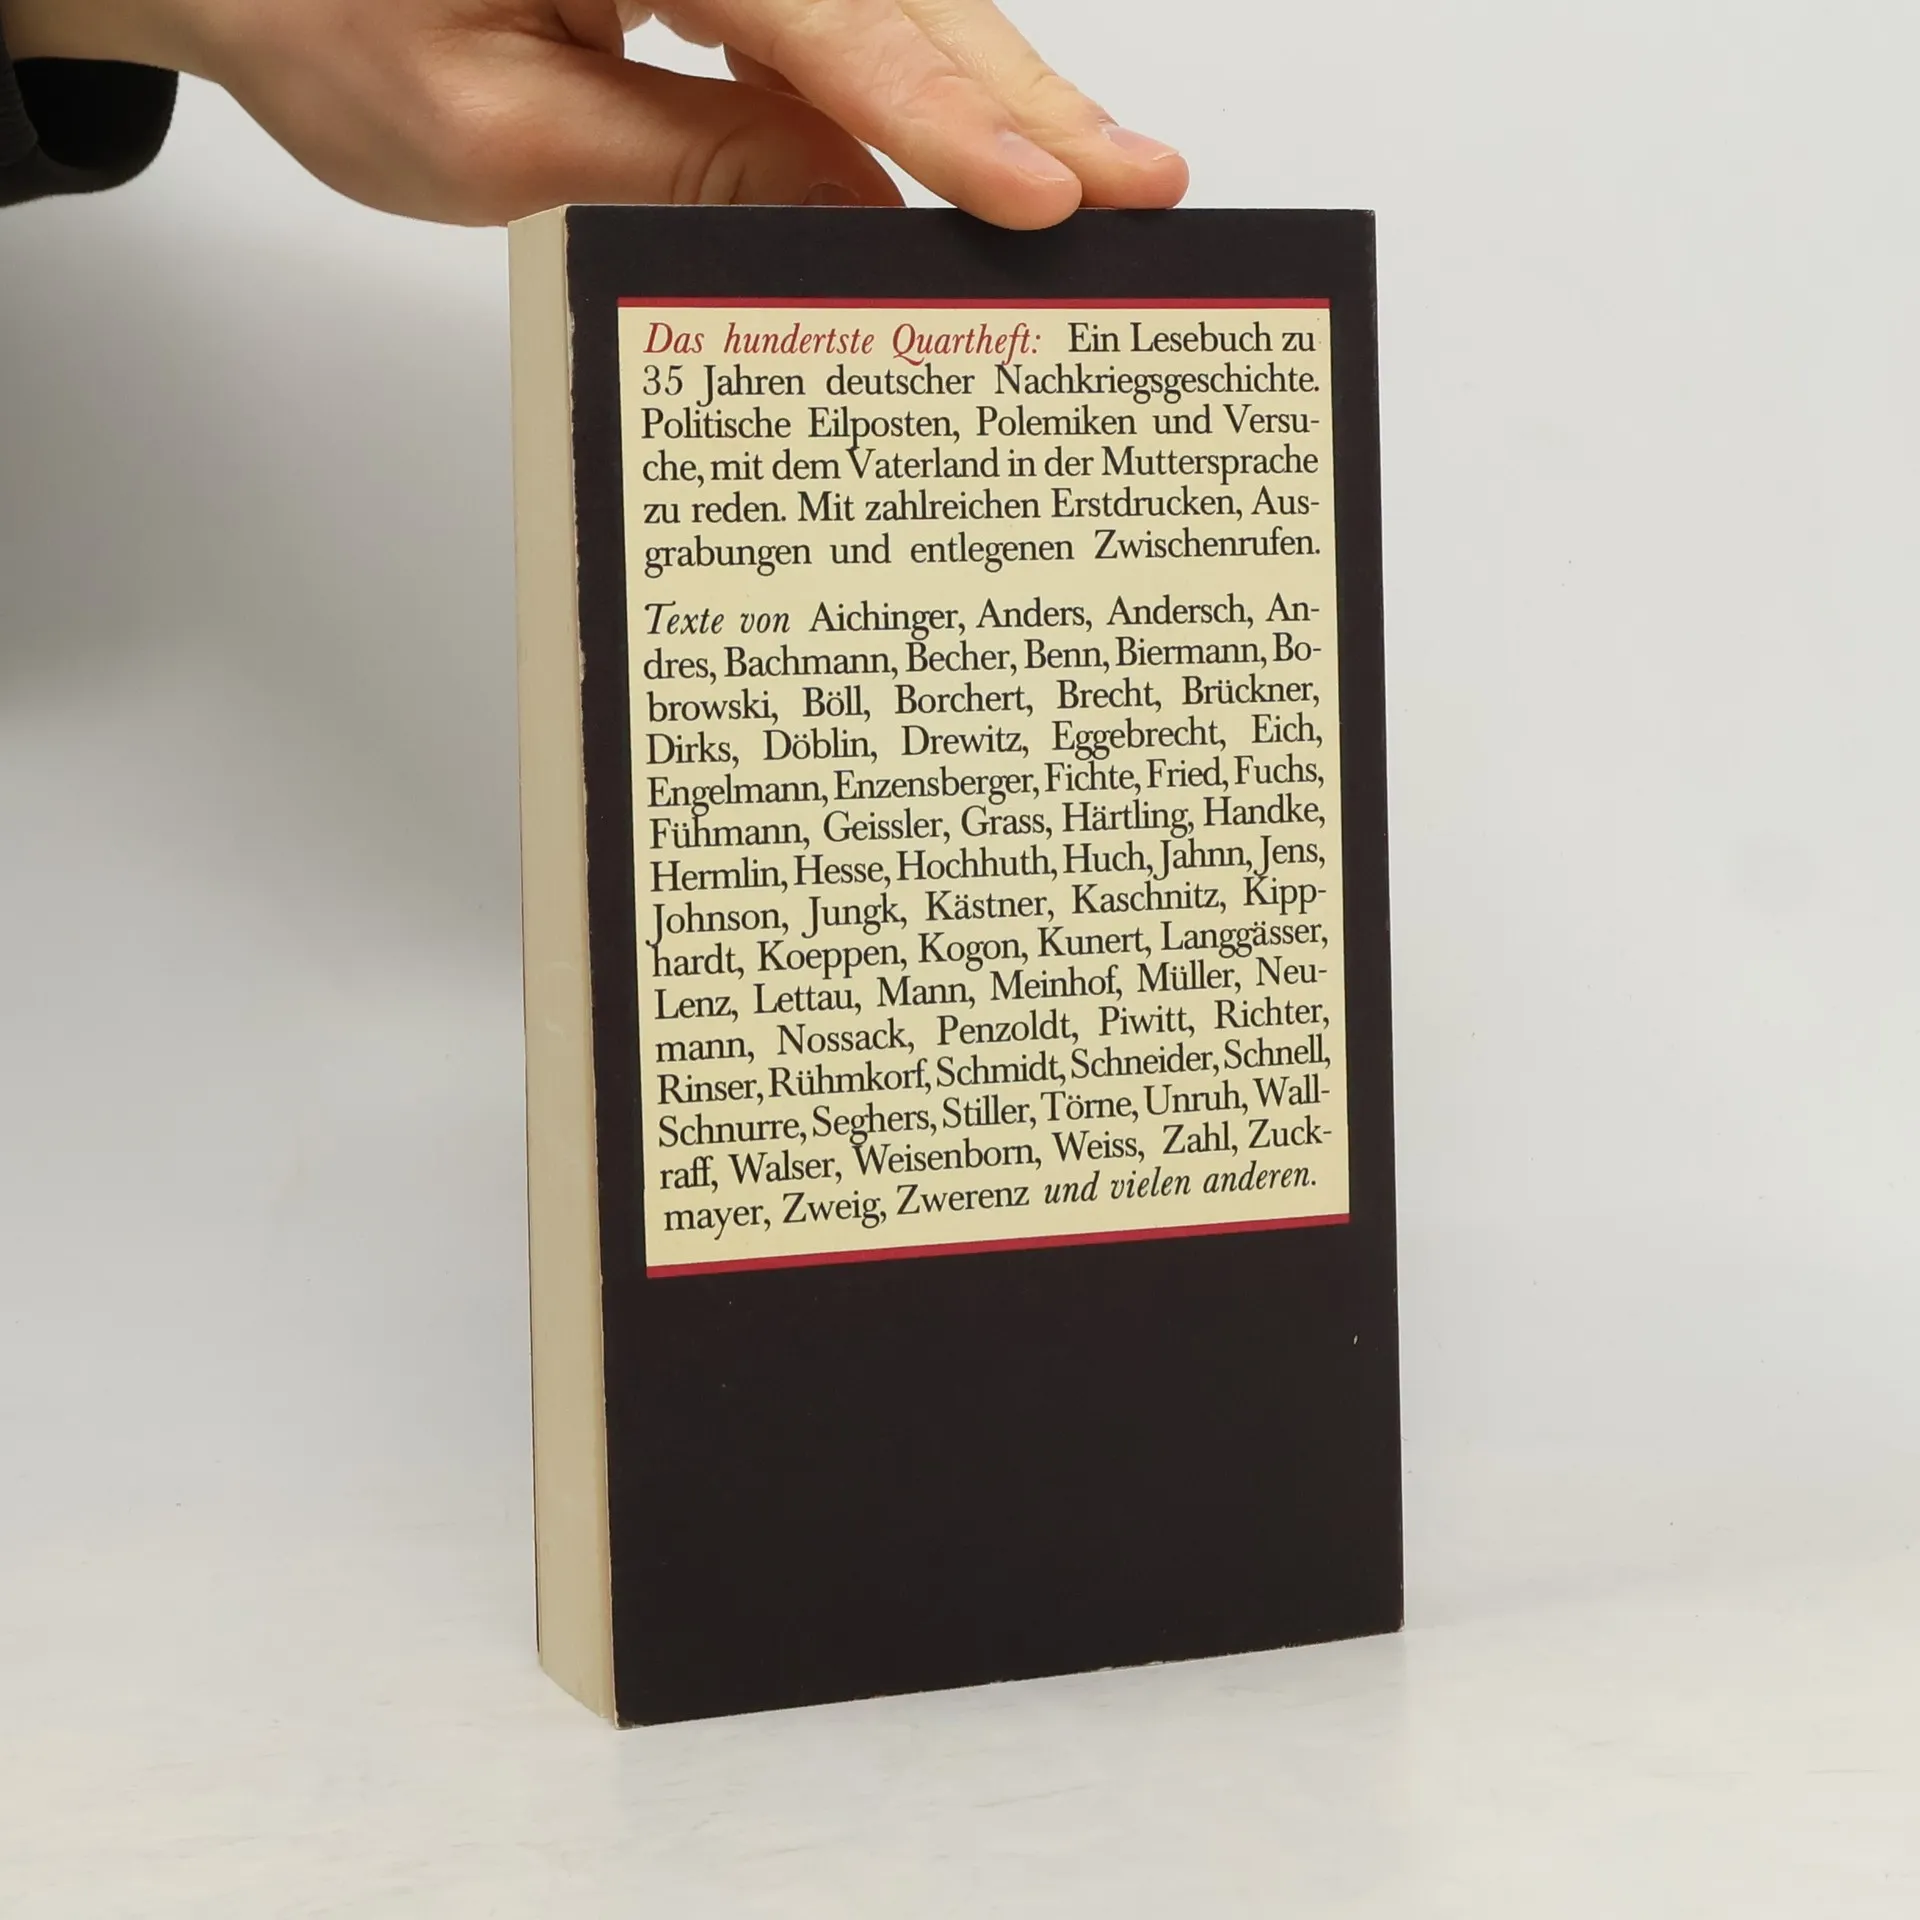 Das hundertste Quartheft: Ein Lesebuch zu
35 Jahren deutscher Nachkriegsgeschichte.
Politische Eilposten, Polemiken und Versu-
che, mit dem Vaterland in der Muttersprache
zu reden. Mit zahlreichen Erstdrucken, Aus-
grabungen und entlegenen Zwischenrufen.
Texte von Aichinger, Anders, Andersch, An-
dres, Bachmann, Becher, Benn, Biermann, Bo-
browski, Böll, Borchert, Brecht, Brückner,
Dirks, Döblin, Drewitz, Eggebrecht, Eich,
Engelmann, Enzensberger, Fichte, Fried, Fuchs,
Fühmann, Geissler, Grass, Härtling, Handke,
Hermlin, Hesse, Hochhuth, Huch, Jahnn, Jens,
Johnson, Jungk, Kästner, Kaschnitz, Kipp-
hardt, Koeppen, Kogon, Kunert, Langgässer,
Lenz, Lettau, Mann, Meinhof, Müller, Neu-
mann, Nossack, Penzoldt, Piwitt, Richter,
Rinser, Rühmkorf, Schmidt, Schneider, Schnell,
Schnurre, Seghers, Stiller, Törne, Unruh, Wall-
raff, Walser, Weisenborn, Weiss, Zahl, Zuck-
mayer, Zweig, Zwerenz und vielen anderen.